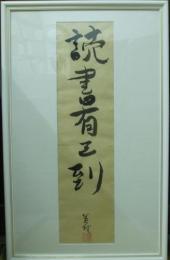 読書有三到